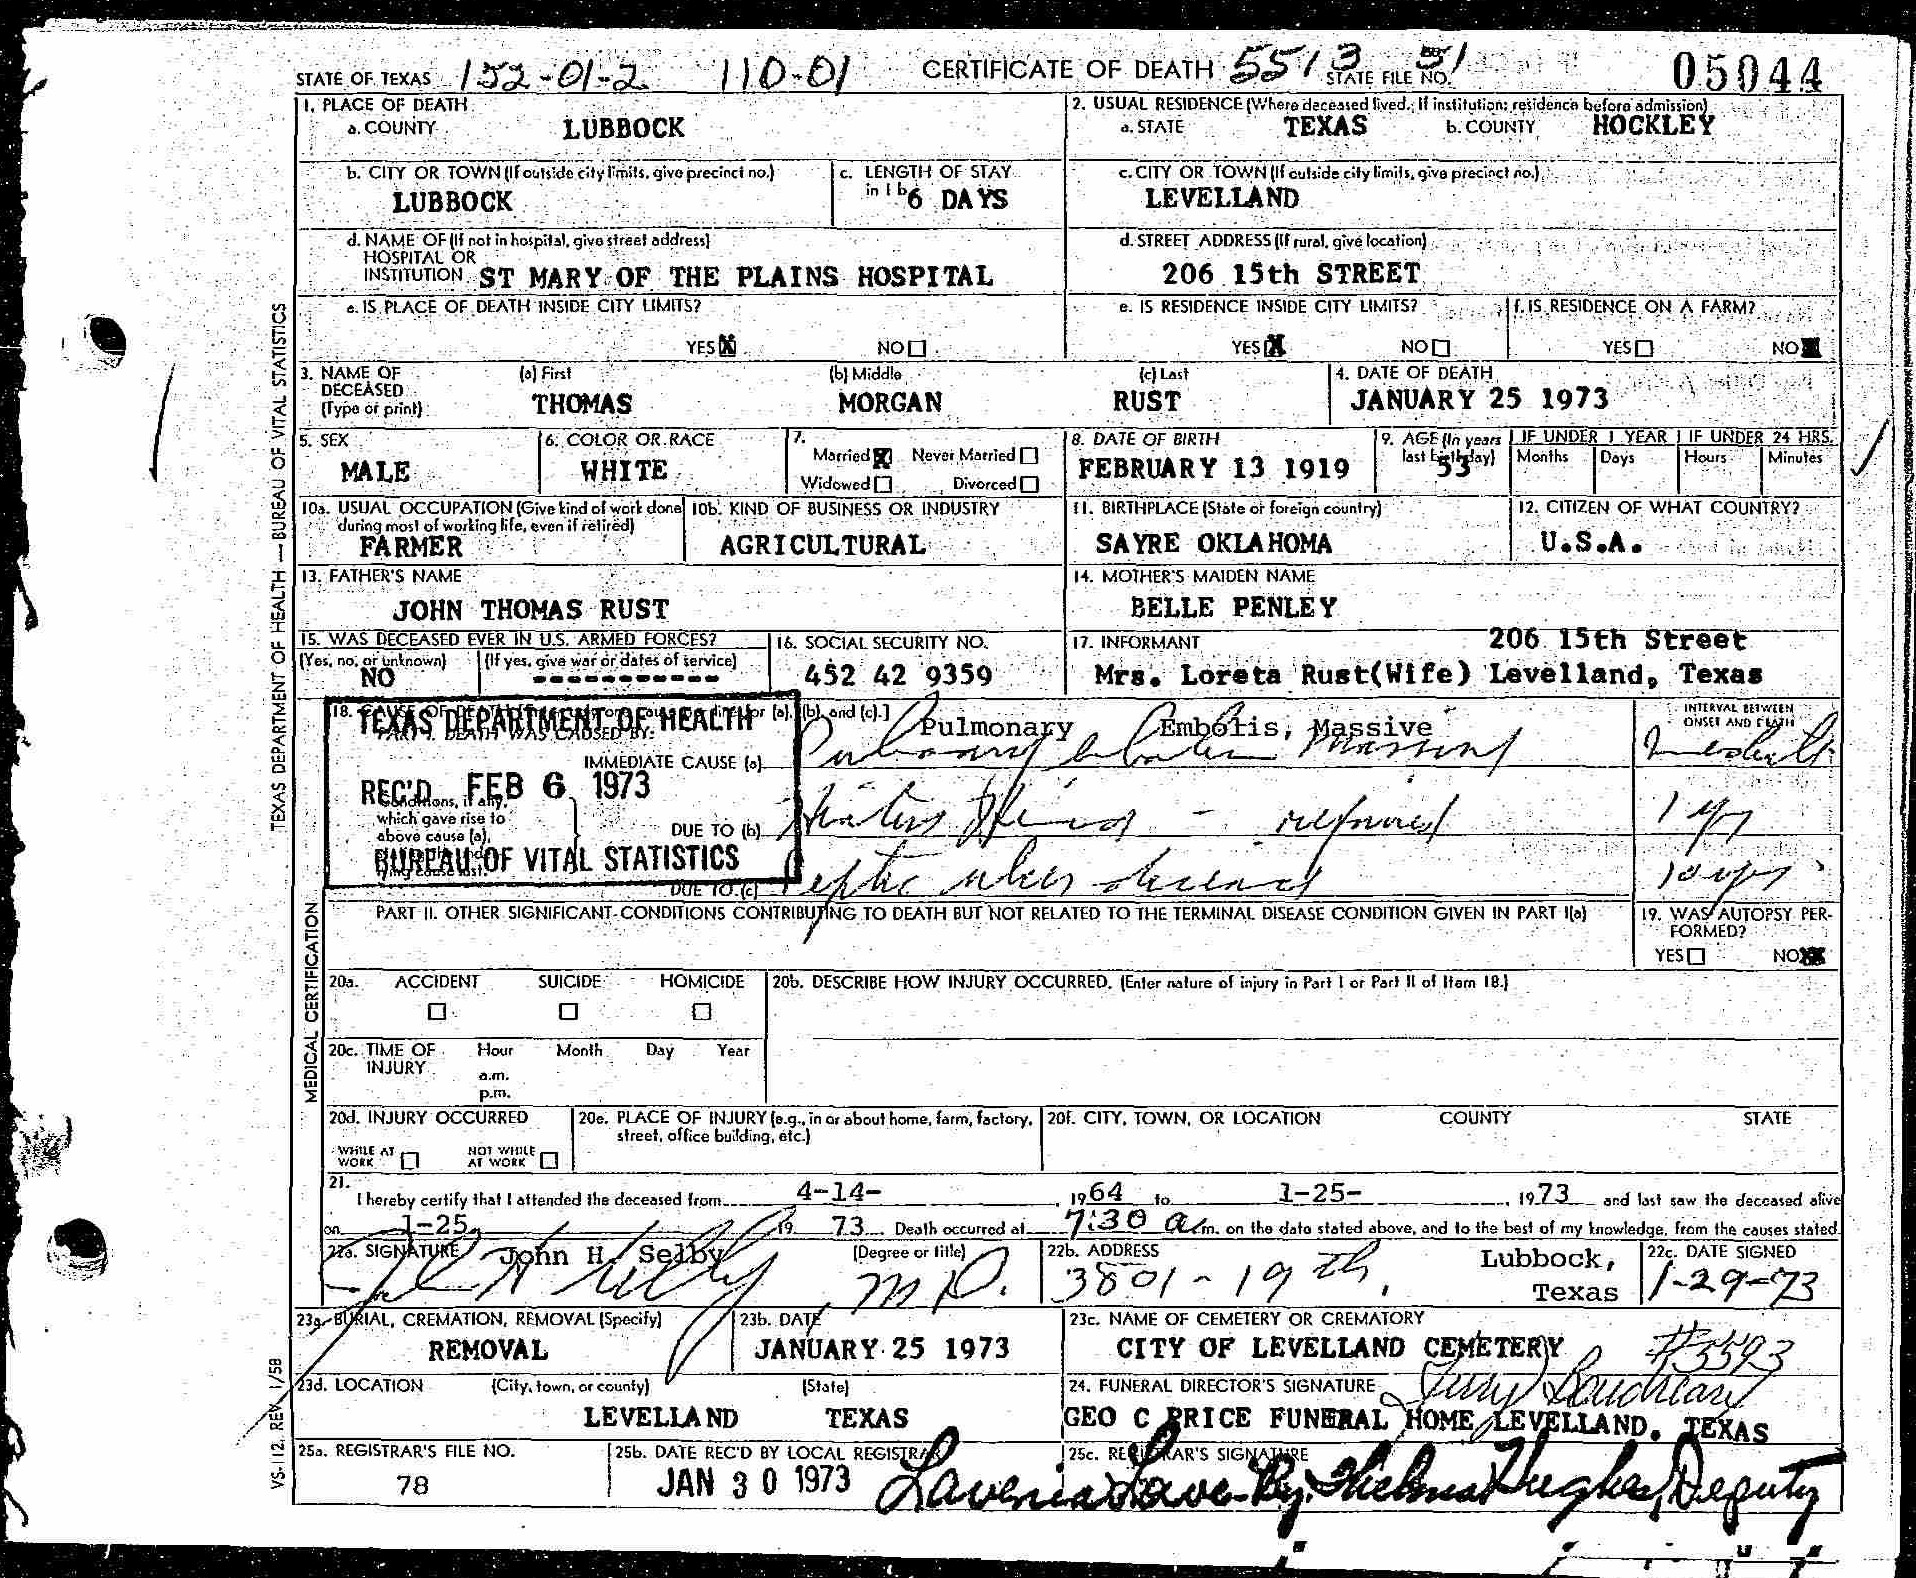 STATE OF TEXAS 152-01-2 110-01 CERTIFICATE OF DEATH 5513 51 STATE FILE NO. 05044
1. PLACE OF DEATH
a. COUNTY LUBBOCK
2. USUAL RESIDENCE (Where deceased lived. If institution: residence before admission)
a. STATE TEXAS b. COUNTY HOCKLEY
b. CITY OR TOWN (If outside city limits, give precinct no.)
LUBBOCK
c. LENGTH OF STAY
in 1 b 6 DAYS
c. CITY OR TOWN (If outside city limits, give precinct no.)
LEVELLAND
d. NAME OF (If not in hospital, give street address)
HOSPITAL OR
INSTITUTION ST MARY OF THE PLAINS HOSPITAL
d. STREET ADDRESS (If rural, give location)
206 15th STREET
e. IS PLACE OF DEATH INSIDE CITY LIMITS?
YES X NO
e. IS RESIDENCE INSIDE CITY LIMITS?
YES X NO
f. IS RESIDENCE ON A FARM?
YES NO X
3. NAME OF DECEASED (Type or print)
(a) First (b) Middle (c) Last
THOMAS MORGAN RUST
4. DATE OF DEATH
JANUARY 25 1973
5. SEX
MALE
6. COLOR OR RACE
WHITE
7.
Married X Never Married
Widowed Divorced
8. DATE OF BIRTH
FEBRUARY 13 1919
9. AGE (In years last birthday)
53
IF UNDER 1 YEAR IF UNDER 24 HRS.
Months Days Hours Minutes
10a. USUAL OCCUPATION (Give kind of work done during most of working life, even if retired)
FARMER
10b. KIND OF BUSINESS OR INDUSTRY
AGRICULTURAL
11. BIRTHPLACE (State or foreign country)
SAYRE OKLAHOMA
12. CITIZEN OF WHAT COUNTRY?
U.S.A.
13. FATHER'S NAME
JOHN THOMAS RUST
14. MOTHER'S MAIDEN NAME
BELLE PENLEY
15. WAS DECEASED EVER IN U.S. ARMED FORCES?
(Yes, no, or unknown) (If yes, give war or dates of service)
NO -----------
16. SOCIAL SECURITY NO.
452 42 9359
17. INFORMANT 206 15th Street
Mrs. Loreta Rust(Wife) Levelland, Texas
TEXAS DEPARTMENT OF HEALTH
REC'D FEB 6 1973
BUREAU OF VITAL STATISTICS
18. CAUSE OF DEATH (a), (b), and (c).]
PART I. DEATH WAS CAUSED BY:
INTERVAL BETWEEN
ONSET AND DEATH
Pulmonary Embolis, Massive
IMMEDIATE CAUSE (a) Massive
Conditions, if any,
which gave rise to
above cause (a),
DUE TO (b) Hiatus Hernia - repaired 1 yr
DUE TO (c) Peptic ulcer disease 10 yrs
PART II. OTHER SIGNIFICANT CONDITIONS CONTRIBUTING TO DEATH BUT NOT RELATED TO THE TERMINAL DISEASE CONDITION GIVEN IN PART I(a)
19. WAS AUTOPSY PERFORMED?
YES NO XX
20a. ACCIDENT SUICIDE HOMICIDE
20b. DESCRIBE HOW INJURY OCCURRED. (Enter nature of injury in Part I or Part II of Item 18.)
20c. TIME OF INJURY Hour Month Day Year
a.m.
p.m.
20d. INJURY OCCURRED
WHILE AT WORK NOT WHILE AT WORK
20e. PLACE OF INJURY (e.g., in or about home, farm, factory, street, office building, etc.)
20f. CITY, TOWN, OR LOCATION COUNTY STATE
21.
I hereby certify that I attended the deceased from 4-14- , 1964 to 1-25- , 1973 and last saw the deceased alive
on 1-25 19 73. Death occurred at 7:30 a.m. on the date stated above, and to the best of my knowledge, from the causes stated.
22a. SIGNATURE John H. Selby (Degree or title)
John H Selby, M.D.
22b. ADDRESS
3801-19th, Lubbock, Texas
22c. DATE SIGNED
1-29-73
23a. BURIAL, CREMATION, REMOVAL (Specify)
REMOVAL
23b. DATE
JANUARY 25 1973
23c. NAME OF CEMETERY OR CREMATORY
CITY OF LEVELLAND CEMETERY #3593
23d. LOCATION (City, town, or county) (State)
LEVELLAND TEXAS
24. FUNERAL DIRECTOR'S SIGNATURE
GEO C PRICE FUNERAL HOME LEVELLAND, TEXAS
25a. REGISTRAR'S FILE NO.
78
25b. DATE REC'D BY LOCAL REGISTRAR
JAN 30 1973
25c. REGISTRAR'S SIGNATURE
Lavenia Lowe By: Thelma Hughes, Deputy
TEXAS DEPARTMENT OF HEALTH — BUREAU OF VITAL STATISTICS
MEDICAL CERTIFICATION
VS-112, REV. 1/58